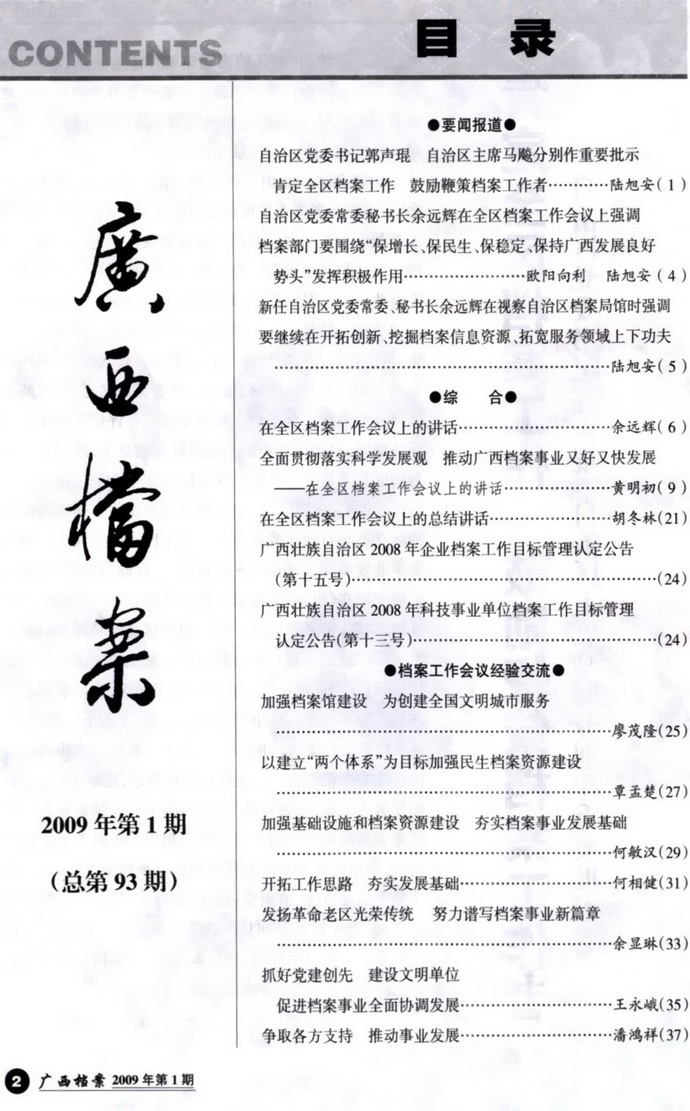 CONTENTS
目 录
廣西檔案
2009年第1期
(总第93期)
●要闻报道●
自治区党委书记郭声琨 自治区主席马飚分别作重要批示
肯定全区档案工作 鼓励鞭策档案工作者…………陆旭安(1)
自治区党委常委秘书长余远辉在全区档案工作会议上强调
档案部门要围绕“保增长、保民生、保稳定、保持广西发展良好
势头”发挥积极作用……………………欧阳向利 陆旭安(4)
新任自治区党委常委、秘书长余远辉在视察自治区档案局馆时强调
要继续在开拓创新、挖掘档案信息资源、拓宽服务领域上下功夫
…………………………………………………………陆旭安(5)
●综 合●
在全区档案工作会议上的讲话…………………………余远辉(6)
全面贯彻落实科学发展观 推动广西档案事业又好又快发展
——在全区档案工作会议上的讲话…………………黄明初(9)
在全区档案工作会议上的总结讲话……………………胡冬林(21)
广西壮族自治区2008年企业档案工作目标管理认定公告
(第十五号)……………………………………………………(24)
广西壮族自治区2008年科技事业单位档案工作目标管理
认定公告(第十三号)…………………………………………(24)
●档案工作会议经验交流●
加强档案馆建设 为创建全国文明城市服务
…………………………………………………………廖茂隆(25)
以建立“两个体系”为目标加强民生档案资源建设
…………………………………………………………覃孟楚(27)
加强基础设施和档案资源建设 夯实档案事业发展基础
…………………………………………………………何敏汉(29)
开拓工作思路 夯实发展基础…………………………何相健(31)
发扬革命老区光荣传统 努力谱写档案事业新篇章
…………………………………………………………余显琳(33)
抓好党建创先 建设文明单位
促进档案事业全面协调发展…………………………王永峨(35)
争取各方支持 推动事业发展…………………………潘鸿祥(37)
2 广西档案 2009年第1期